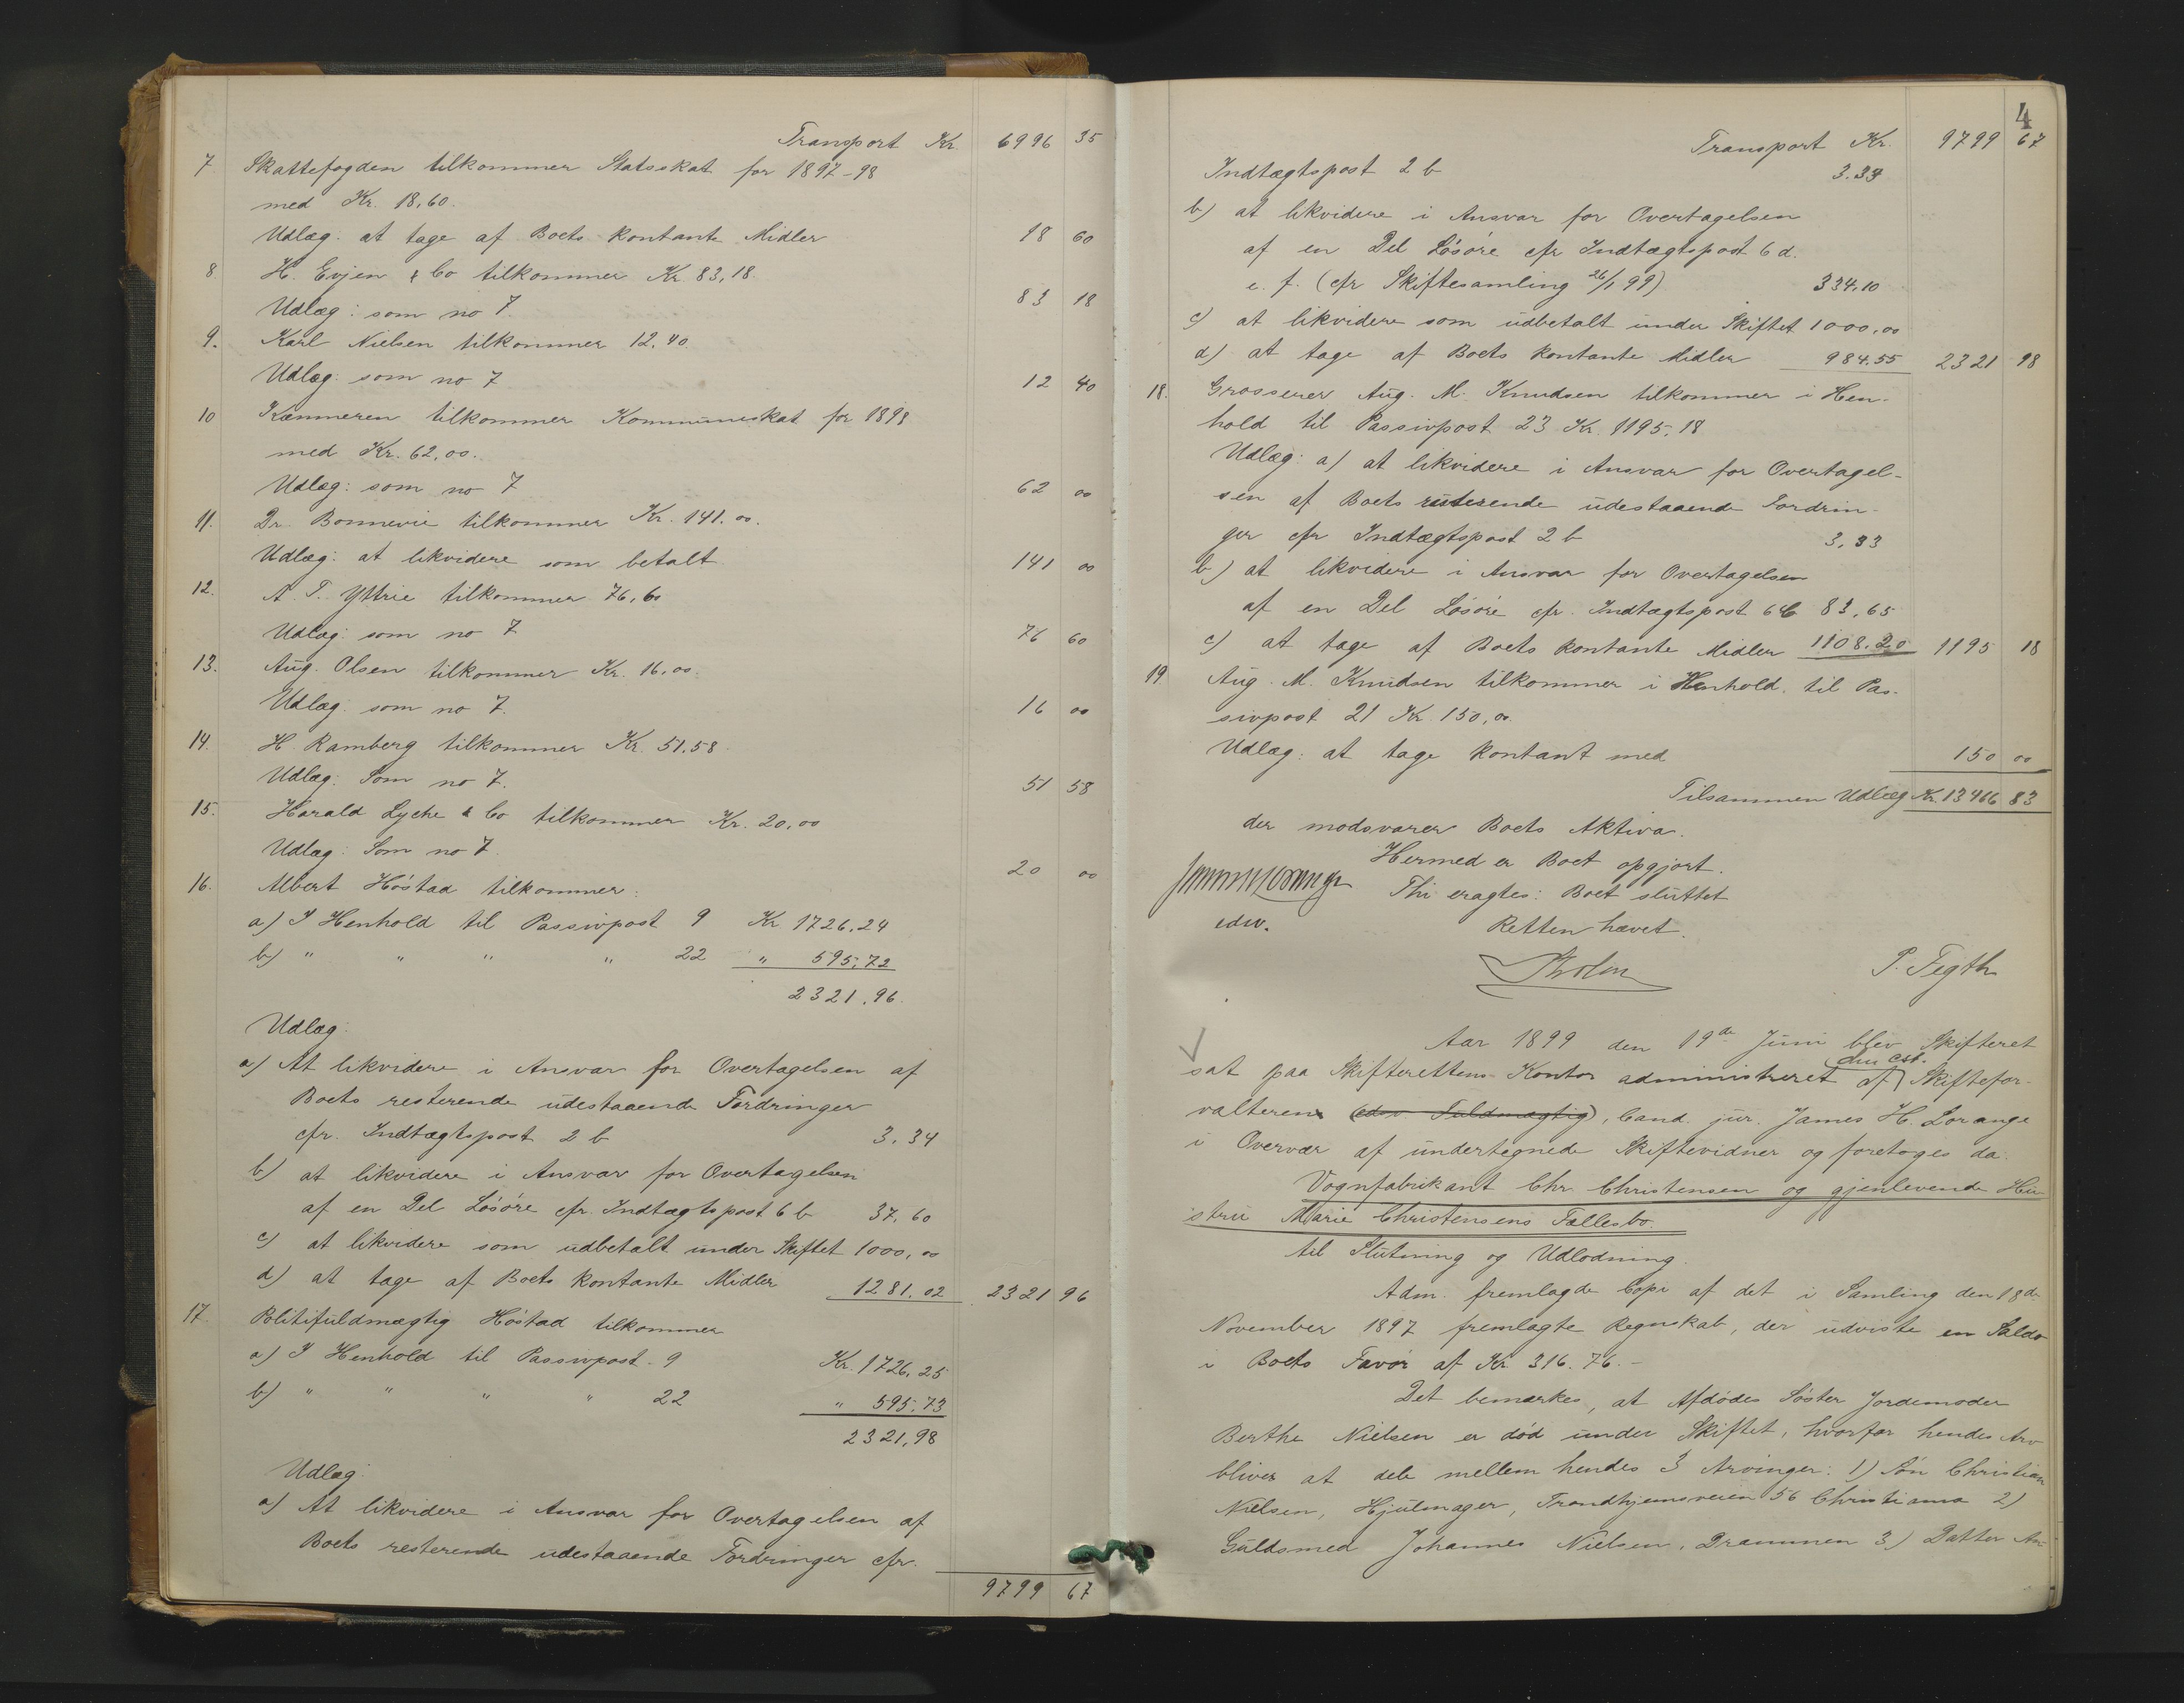 Transport Kr. 6996 35
7. Skattefogden tilkommer Statsskat for 1897-98
med Kr. 18,60.
Udlæg: at tage af Boets kontante Midler 18 60
8. H. Evjen & Co tilkommer Kr. 83,18.
Udlæg: som no 7. 83 18
9. Karl Nielsen tilkommer 12.40.
Udlæg: som no 7 12 40
10 Kæmneren tilkommer Kommuneskat for 1898
med Kr. 62,00.
Udlæg: som no 7 62 00
11. Dr. Bonnevie tilkommer Kr. 141.00.
Udlæg: at likvidere som betalt 141 00
12. A. T. Yttrie tilkommer 76,60
Udlæg: som no 7 76 60
13. Aug. Olsen tilkommer Kr. 16,00.
Udlæg: som no 7. 16 00
14. H. Ramberg tilkommer Kr. 51.58.
Udlæg: Som no 7. 51 58
15. Harald Lyche & Co tilkommer Kr. 20,00
Udlæg: Som no 7. 20 00
16. Albert Höstad tilkommer:
a) I Henhold til Passivpost 9 Kr 1726.24
b) " " " " 22 " 595,72
2321.96.
Udlæg:
a) At likvidere i Ansvar for Overtagelsen af
Boets resterende udestaaende Fordringer
cfr. Indtægtspost 2 b 3,34
b) at likvidere i Ansvar for Overtagelsen
af en Del Lösöre cfr. Indtægtspost 6 b 37,60
c) at likvidere som udbetalt under Skiftet 1000,00
d) at tage af Boets kontante Midler 1281.02 2321 96
17. Politifuldmægtig Höstad tilkommer
a) I Henhold til Passivpost 9 Kr. 1726,25
b) " " " " 22 " 595.73
2321,98
Udlæg:
a) At likvidere i Ansvar for Overtagelsen af
Boets resterende udestaaende Fordringer cfr.
9799 67
4
Transport Kr. 9799 67
Indtægtspost 2 b 3.33
b) at likvidere i Ansvar for Overtagelsen
af en Del Lösöre cfr Indtægtspost 6 d.
e. f. (cfr Skiftesamling 26/1 99) 334,10
c) at likvidere som udbetalt under Skiftet 1000,00
d) at tage af Boets kontante Midler 984.55 2321 98
18. Grosserer Aug. M. Knudsen tilkommer i Hen-
hold til Passivpost 23 Kr. 1195,18
Udlæg: a) at likvidere i Ansvar for Overtagel-
sen af Boets resterende udestaaende Fordrin-
ger cfr Indtægtspost 2 b 3,33
b) at likvidere i Ansvar for Overtagelsen
af en Del Lösöre cfr. Indtægtspost 6 c 83,65
c) at tage af Boets kontante Midler 1108.20 1195 18
19. Aug. M. Knudsen tilkommer i Henhold til Pas-
sivpost 21 Kr. 150,00.
Udlæg: at tage kontant med 150 00
Tilsammen Udlæg Kr. 13466 83
der modsvarer Boets Aktiva.
Hermed er Boet opgjort.
Thi eragtes: Boet sluttet
edsv. Retten hævet.
P. Tegth
Aar 1899 den 19de Juni blev Skifteret
sat paa Skifterettens Kontor administreret af den cst. Skiftefor-
valteren (edsv. Fuldmægtig), Cand. jur. James H. Lorange
i Overvær af undertegnede Skiftevidner og foretoges da:
Vognfabrikant Chr. Christensen og gjenlevende Hu-
stru Marie Christensens Fællesbo.
til Slutning og Udlodning.
Adm. fremlagde Copi af det i Samling den 18de
November 1897 fremlagte Regnskab, der udviste en Saldo
i Boets Favör af Kr. 316.76.-
Det bemærkes, at Afdödes Söster Jordemoder
Berthe Nielsen er död under Skiftet, hvorfor hendes Arv
bliver at dele mellem hendes 3 Arvinger: 1) Sön Christian
Nielsen, Hjulmager, Trondhjemsveien 56 Christiania 2)
Guldsmed Johannes Nielsen, Drammen 3) Datter An-